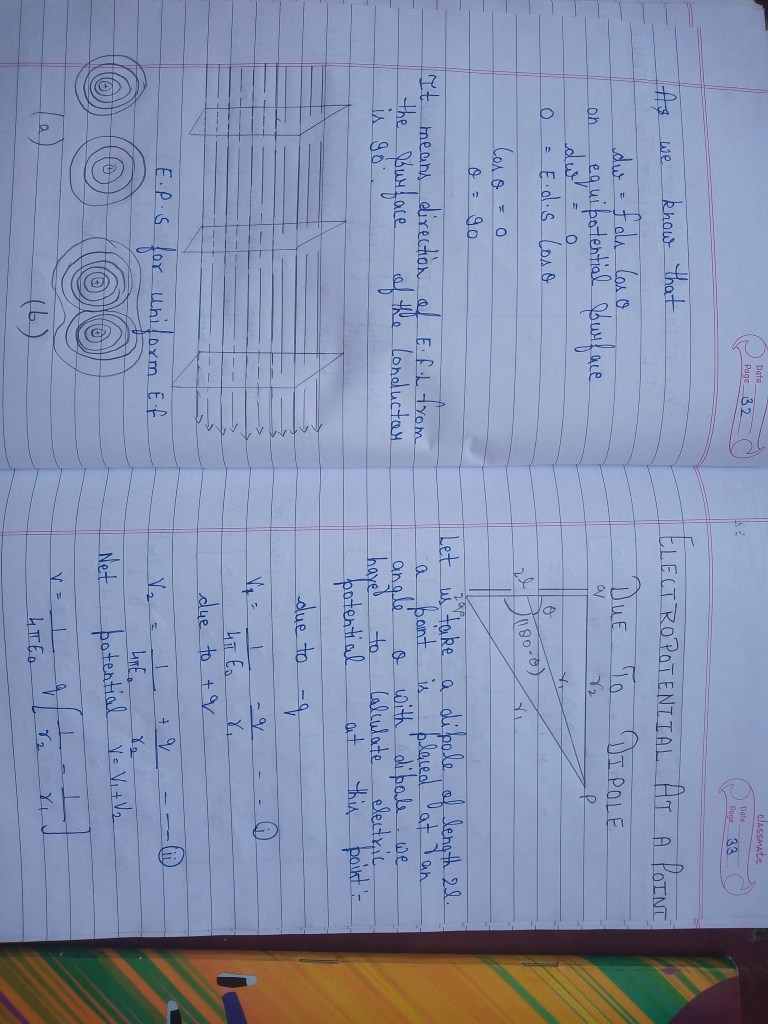 Date
Page 32
As we know that
dw = f ds Cos θ
on equipotential surface
dw = 0
0 = E.d.s Cos θ
Cos θ = 0
θ = 90
It means direction of E.f.L from
the surface of the Conductor
is 90°.
E.P.S for uniform E.f
(a)
(b)
classmate
Date
Page 33
ELECTROPOTENTIAL AT A POINT
DUE TO DIPOLE
r2
P
θ
2l
(180-θ)
r1
r1
Let us take a dipole of length 2l.
a point is placed at r an
angle θ with dipole. we
have to Calculate electric
potential at this point:-
due to -q
V1 = 1/4πE0 -q/r1 - - - (i)
due to +q
V2 = 1/4πE0 +q/r2 - - - (ii)
Net potential V = V1+V2
V = 1/4πE0 q [1/r2 - 1/r1]